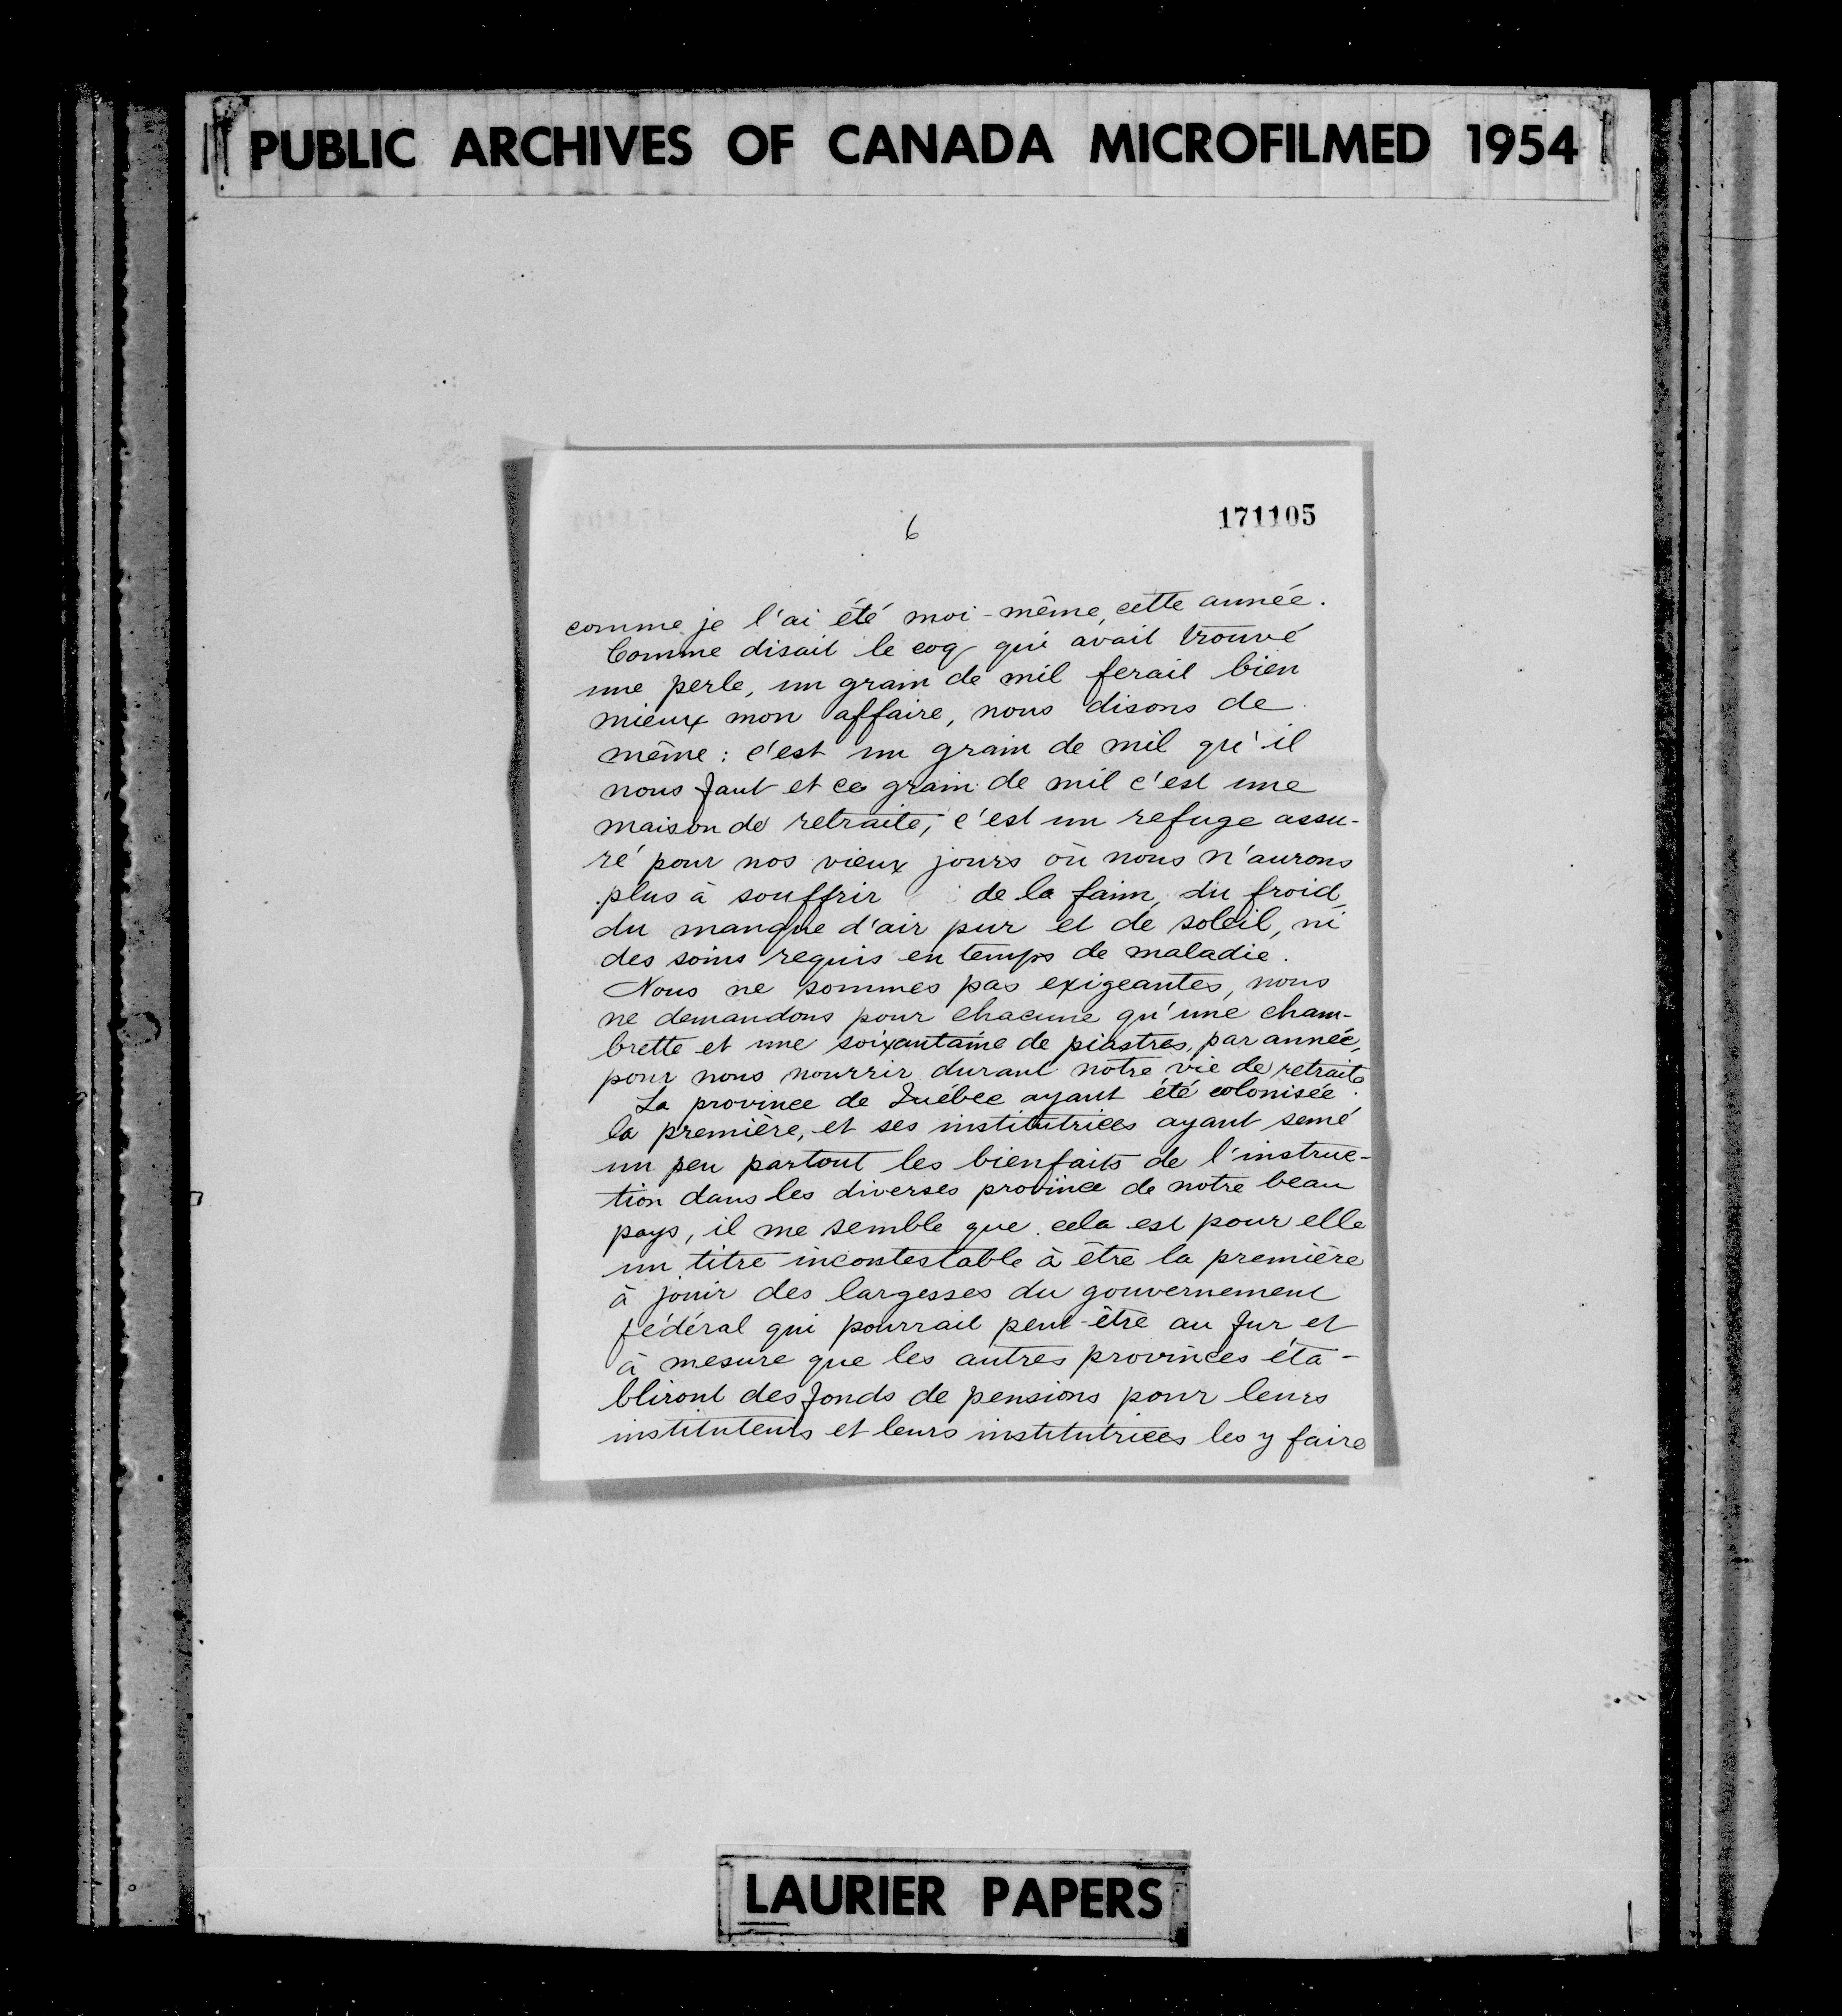 PUBLIC ARCHIVES OF CANADA MICROFILMED 1954
6
171105
comme je l'ai été moi-même, cette année.
Comme disait le coq qui avait trouvé
une perle, un grain de mil ferait bien
mieux mon affaire, nous disons de
même : c'est un grain de mil qu'il
nous faut et ce grain de mil c'est une
maison de retraite, c'est un refuge assu-
ré pour nos vieux jours où nous n'aurons
plus à souffrir de la faim, du froid,
du manque d'air pur et de soleil, ni
des soins requis en temps de maladie.
Nous ne sommes pas exigeantes, nous
ne demandons pour chacune qu'une cham-
brette et une soixantaine de piastres, par année,
pour nous nourrir durant notre vie de retraite.
La province de Québec ayant été colonisée
la première, et ses institutrices ayant semé
un peu partout les bienfaits de l'instruc-
tion dans les diverses province de notre beau
pays, il me semble que cela est pour elle
un titre incontestable à être la première
à jouir des largesses du gouvernement
fédéral qui pourrait peut-être au fur et
à mesure que les autres provinces éta-
bliront des fonds de pensions pour leurs
instituteurs et leurs institutrices les y faire
LAURIER PAPERS